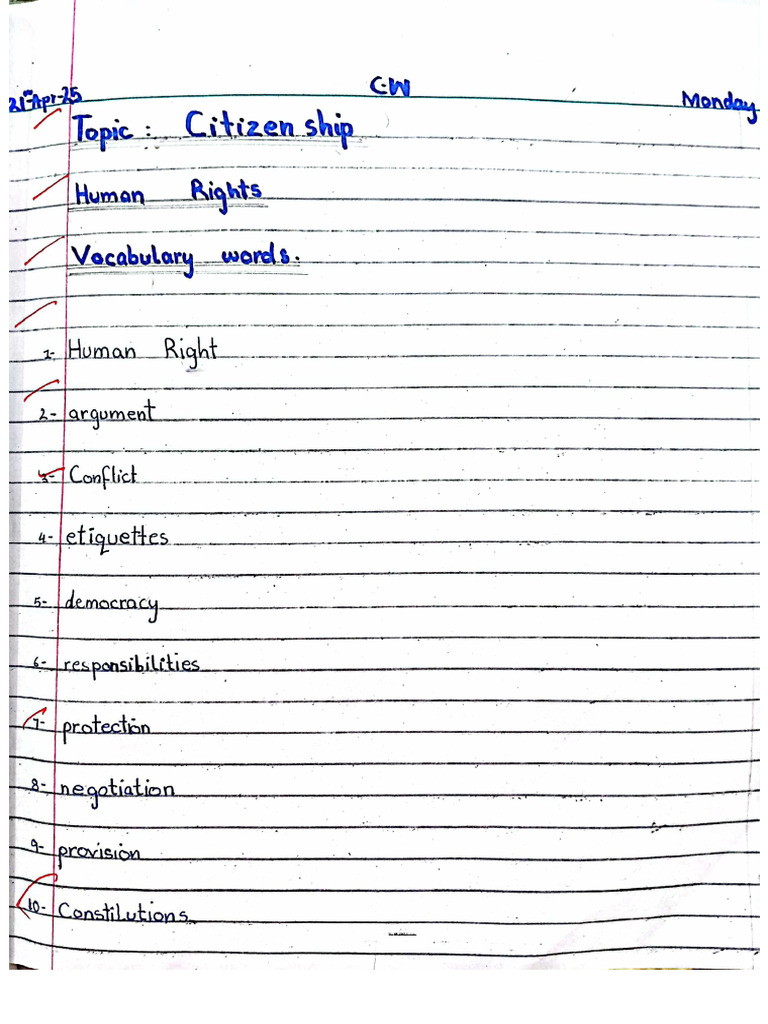 C.W
21st Apr-25
Monday
Topic : Citizen ship
Human Rights
Vocabulary words.
1- Human Right
2- argument
3- Conflict
4- etiquettes
5- democracy
6- responsibilities
7- protection
8- negotiation
9- provision
10- Constilutions